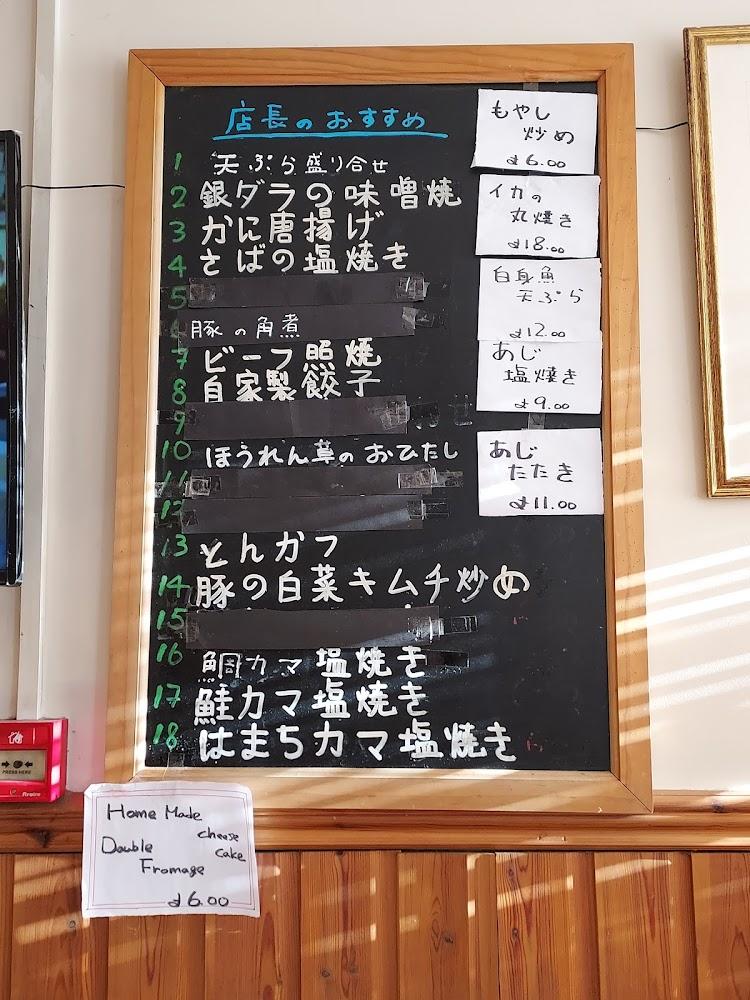 店長のおすすめ
1 天ぷら盛り合せ
2 銀ダラの味噌焼
3 かに唐揚げ
4 さばの塩焼き
5
6 豚の角煮
7 ビーフ照焼
8 自家製餃子
9
10 ほうれん草のおひたし
11
12
13 とんカツ
14 豚の白菜キムチ炒め
15
16 鯛カマ塩焼き
17 鮭カマ塩焼き
18 はまちカマ塩焼き
もやし
炒め
£6.00
イカの
丸焼き
£18.00
白身魚
天ぷら
£12.00
あじ
塩焼き
£9.00
あじ
たたき
£11.00
PRESS HERE
Home Made
Double cheese
Fromage cake
£6.00